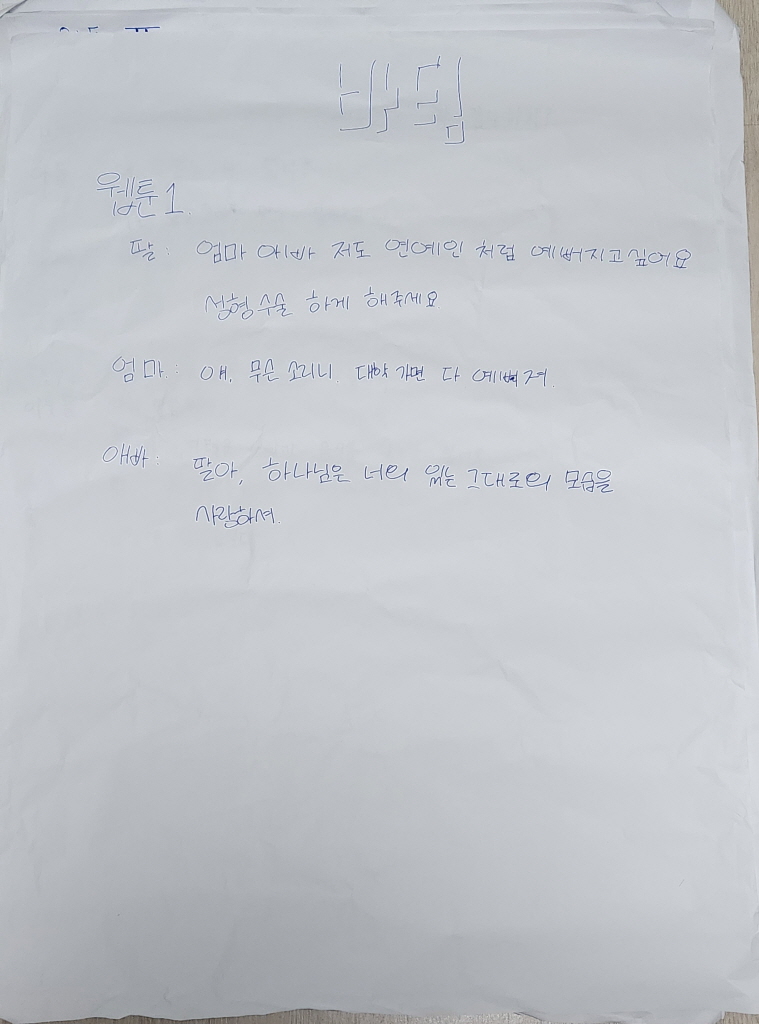 바림
웹툰 1.
딸: 엄마 아빠 저도 연예인 처럼 예뻐지고싶어요
성형수술 하게 해주세요
엄마: 얘. 무슨 소리니. 대학 가면 다 예뻐져.
아빠: 딸아, 하나님은 너의 있는 그대로의 모습을
사랑하셔.